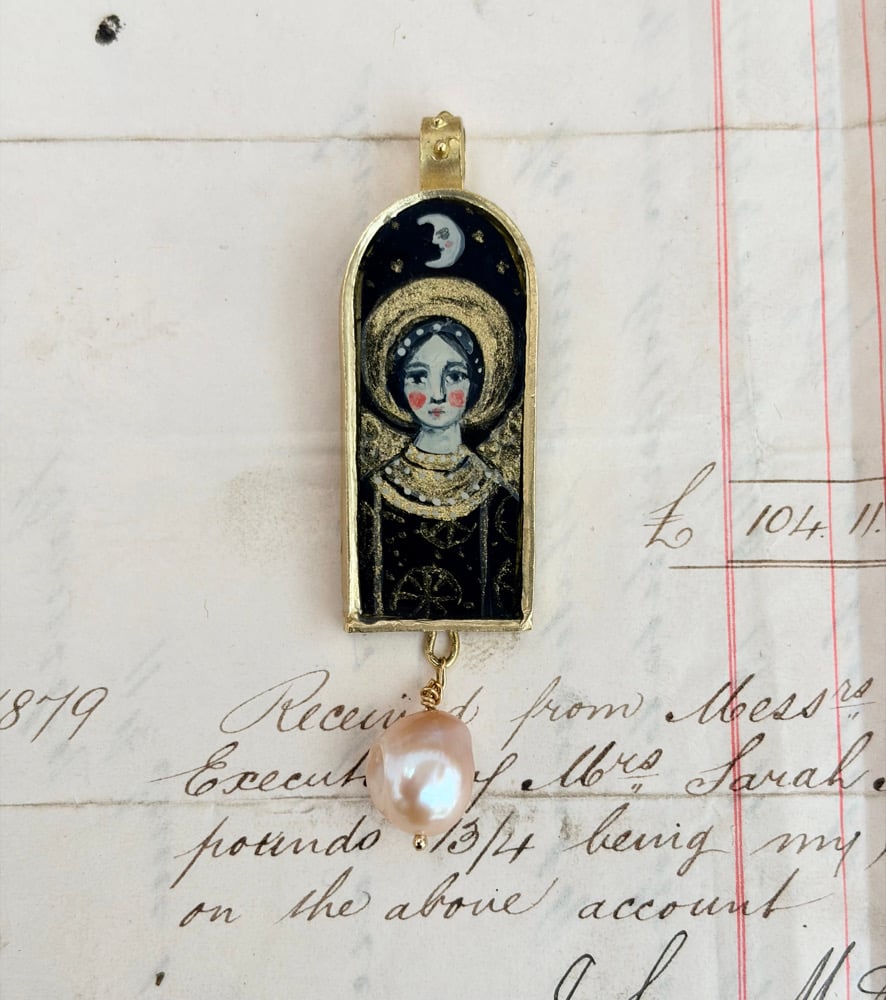 £ 104. 11.
1879 Received from Messrs
of Mrs Sarah
pounds 13/4 being my
on the above account